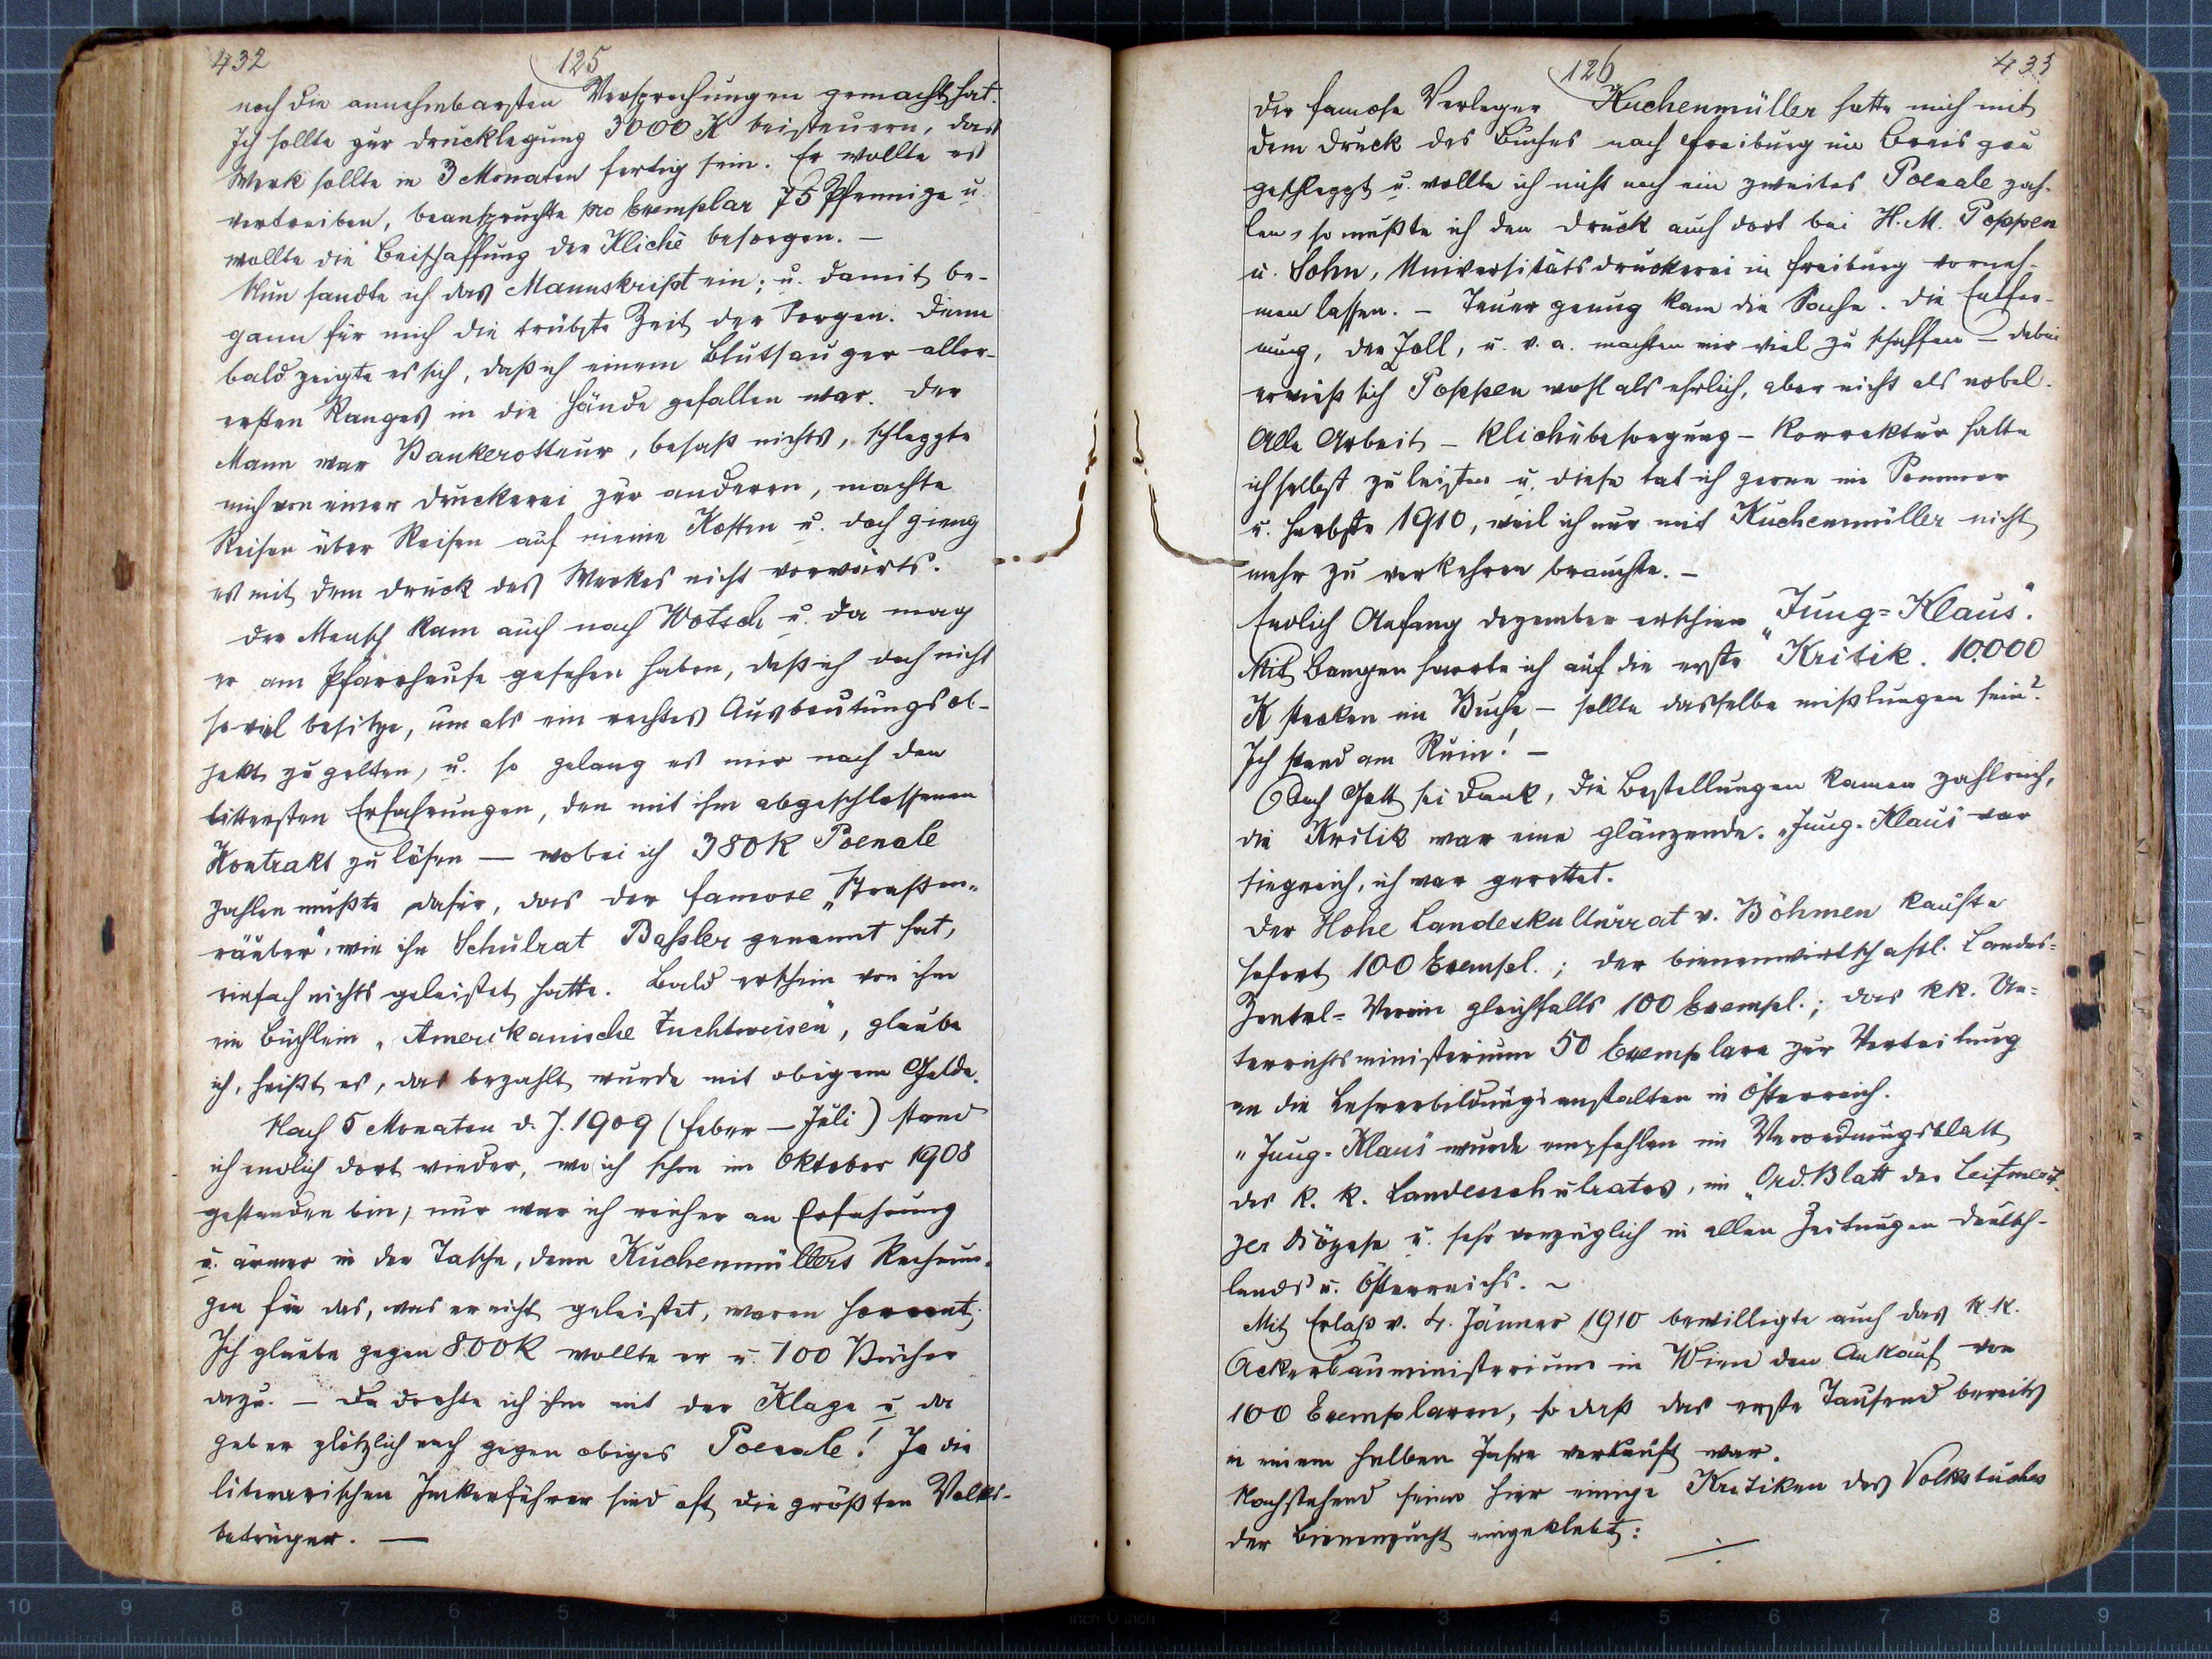 432
125
noch die annehmbarsten Versprechungen gemacht hat.
Ich sollte zur Drucklegung 3000 K beisteuern, das
Werk sollte in 3 Monaten fertig sein. Er wollte es
vertreiben, beanspruchte pro Exemplar 75 Pfennige u.
wollte die Beischaffung der Kliché besorgen. —
Nun sandte ich das Manuskript ein; u. damit be-
gann für mich die trübste Zeit der Sorgen. Denn
bald zeigte es sich, daß ich einem Blutsauger aller-
ersten Ranges in die Hände gefallen war. Der
Mann war Bankerotteur, besaß nichts, schleppte
mich von einer Druckerei zur anderen, machte
Reisen über Reisen auf meine Kosten u. doch gieng
es mit dem Druck des Werkes nicht vorwärts.
Der Mensch kam auch nach Wotsch u. da mag
er am Pfarrhause gesehen haben, daß ich doch nicht
so viel besitze, um als ein rechtes Ausbeutungsob-
jekt zu gelten, u. so gelang es mir nach den
bittersten Erfahrungen, den mit ihm abgeschlossenen
Kontrakt zu lösen — wobei ich 380 K Poenale
zahlen mußte dafür, das der famose „Straßen-
räuber", wie ihn Schulrat Baßler genannt hat,
einfach nichts geleistet hatte. Bald erschien von ihm
ein Büchlein „Amerikanische Zuchtweisen", glaube
ich, heißt es, das bezahlt wurde mit obigem Gelde.
Nach 5 Monaten d. J. 1909 (Feber — Juli) stand
ich endlich dort wieder, wo ich schon im Oktober 1908
gestanden bin, nur war ich reicher an Erfahrung
u. ärmer in der Tasche, denn Kuchenmüllers Rechnun-
gen für das, was er nicht geleistet, waren horrent.
Ich glaube gegen 800 K wollte er u. 100 Bücher
dazu. — Da drohte ich ihm mit der Klage u. da
gab er plötzlich nach gegen obiges Poenale! Ja die
literarischen Imkerführer sind oft die größten Volks-
betrüger. —
126
433
Der famose Verleger Kuchenmüller hatte mich mit
dem Druck des Buches nach Freiburg im Breisgau
geschleppt u. wollte ich nicht noch ein zweites Poenale zah-
len, so mußte ich den Druck auch dort bei H. M. Poppen
u. Sohn, Universitätsdruckerei in Freiburg vorneh-
men lassen. — Teuer genug kam die Sache. Die Entfer-
nung, der Zoll, u. v. a. machten mir viel zu schaffen — dabei
erwieß sich Poppen wohl als ehrlich, aber nicht als nobel.
Alle Arbeit — Klichébesorgung — Korrektur hatte
ich selbst zu leisten u. diese tat ich gerne im Sommer
u. Herbste 1910, weil ich nur mit Kuchenmüller nicht
mehr zu verkehren brauchte. —
Endlich Anfang Dezember erschien „Jung=Klaus".
Mit Bangen harrte ich auf die erste Kritik. 10.000
K stecken im Buche — sollte dasselbe mißlungen sein?
Ich stand am Ruin! —
Doch Gott sei Dank, die Bestellungen kamen zahlreich,
die Kritik war eine glänzende. „Jung-Klaus" war
siegreich, ich war gerettet.
Der Hohe Landeskulturrat v. Böhmen kaufte
sofort 100 Exempl.; der bienenwirtschaftl. Landes=
Zentral=Verein gleichfalls 100 Exempl.; das k.k. Un=
terrichtsministerium 50 Exemplare zur Verteilung
an die Lehrerbildungsanstalten in Österreich.
„Jung-Klaus" wurde empfohlen im Verordnungsblatt
des k. k. Landesschulrates, im „Ord. Blatt der Leitmerit-
zer Diözese u. sehr vorzüglich in allen Zeitungen Deutsch-
lands u. Österreichs. ~
Mit Erlaß v. 4. Jänner 1910 bewilligte auch das k.k.
Ackerbauministerium in Wien den Ankauf von
100 Exemplaren, so daß das erste Tausend bereits
in einem halben Jahre verkauft war.
Nachstehend seien hier einige Kritiken des Volksbuches
der Bienenzucht eingeklebt: